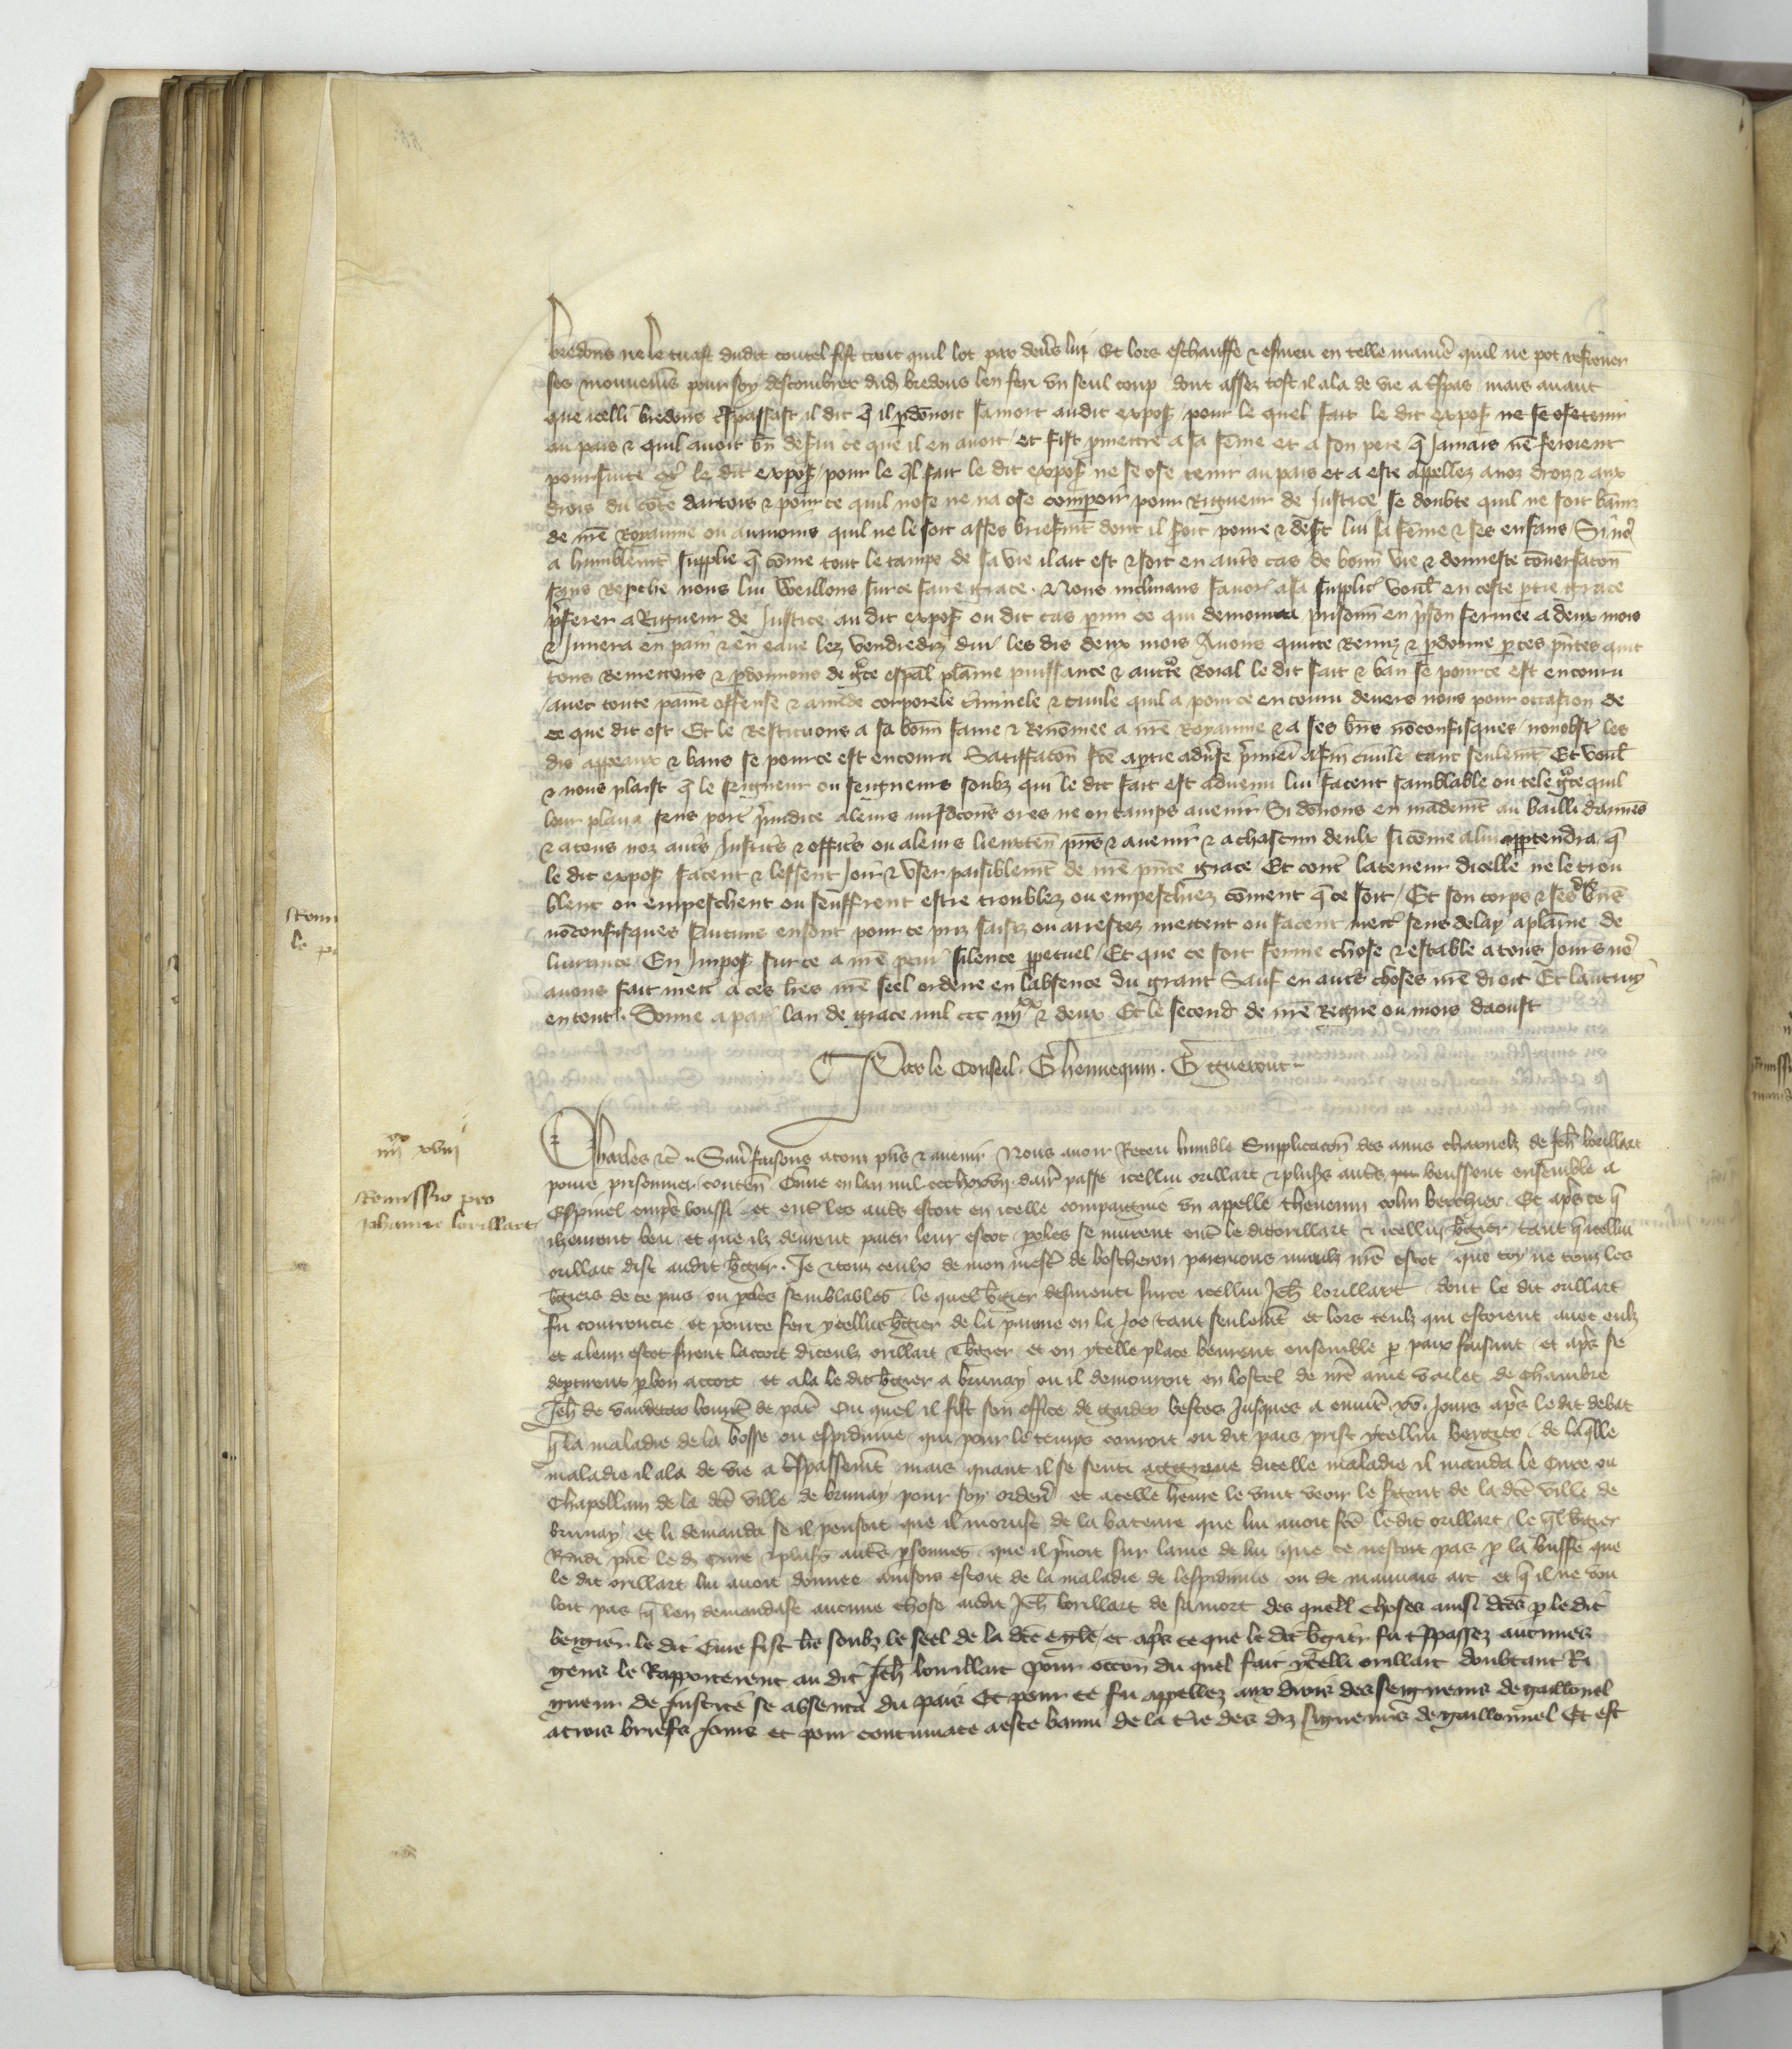 bredons ne le tuast dudit coutel fist tant quil lot par deūs lui Et lors eschauffe & esmeu en telle manie quil ne pot refrener
ses mouuemēs pour soy descombrer dud bredons len feri vn seul coup dont assez tost il ala de vie a t̃spas mais auant
que icelli bredons t̃spassast il dit q̄ il ꝑdōnoit sa mort audit expoſ pour le quel fait le dit expoſ ne se ose tenir
au pais & quil auoit bn̄ deſui ce que il en auoit et fist ꝓmettre a sa fēme et a son pere q̄ Jamais nē feroient
poursuite cōt̃ le dit expoſ pour le q̄l fait le dit expoſ ne se ose tenir au pais et a este appellez a noz droiz & aux
drois du cōte dartois & pour ce quil nose ne na ose comꝑoir pour Rigueur de Justice se doubte quil ne soit bāniz
de nr̄e Royaume ou aumoins quil ne le soit asses briefmt̄ dont il seroit poure & desſt lui sa fēme & ses enfans Si no9
a humblemt̄ supplie q̄ cōme tout le tamps de sa vie il ait est & soit en aut̄s cas de bonn̄ vie & donneste cōuersacōn
sans Reprche nous lui Weillons sur ce faire grace. Nous inclinans fauor̄ a sa supplic̄ voul̄ en ceste ꝑtie grace
p̄ferer a Rigueur de Justice au dit expoſ ou dit cas ꝑmi ce qui demourra prisonn̄ en p̄son fermee a deux mois
& Junera en pain & en eaue lez vendrediz dur̄ les dis deux mois Auons quitte Remiz & ꝑdonne ꝑ ces pn̄tes quit
tons Remettons & ꝑdonnons de gr̄ce esp̄al plaine puissance & auct̄e Roial le dit fait & ban se pour ce est encouru
auec toute paine offense & amēde corporele criminele & ciuile quil a pour ce encouru deuers nous pour occasion de
ce que dit est Et le Restituons a sa bonn̄ fame & Renōmee a nr̄e Royaume & a ses bn̄s nōconfisques nonobst̄ les
dis appeaux & bans se pour ce est encouru Satiffacōn fc̄e a ꝑtie adūse p̄mier a fin ciuile tant seulemt̄ Et voul̄
& nous plaist q̄ le seigneur ou seigneurs soubz qui le dit fait est aduenu lui facent samblable ou tele gr̄ce quil
leur plaira sens port̄ p̄iudice a leurs iuridcōns ores ne ou tamps auenir Si dōnons en mādemt̄ au bailli damiēs
& a tous noz aut̄s Justic̄s & offic̄s ou a leurs lieuxten̄ pn̄s & auenir & a chascun deulx si cōme a lui appertendra q̄
le dit expoſ facent & lessent Joir & vser paisiblemt̄ de nr̄e pn̄te grace Et cont̄ la teneur dicelle ne le trou
blent ou empeschent ou seuffrent estre troublez ou empeschiez cōment q̄ ce soit Et son corps & ses dis biēs
nōconfisques saucuns en sont pour ce priz saisiz ou arrestez mettent ou facent mectt̄ sens delay a plaine de
liurance En Jmpoſ sur ce a nr̄e pcur̄ silence ꝑpetuel Et que ce soit ferme chose & estable a tous Jours no9
auons fait mett̄ a ces lr̄es nr̄e seel ordene en labsence du grant Sauf en aut̄s choses nr̄e droit Et lautruy
en tout. Donne a par̄ lan de grace mil ccc iiijxx & deux Et le second de nr̄e Regne ou mois daoust
Par le Conseil. G hennequin. G guerout
iiijxx xviij
Remissio pro
Johanne lorillart
Charles &c̄ Sau̅ faisons a touz pn̄s & auenir Nous auoir Receu humble Supplicacōn des amis charnelz de Jeh̄ lorillart
poure prisonnier conten̄ Cōme en lan mil ccc lxxviij darr̄ passe icellui orillart & plus̄s aut̄s beussent ensemble a
Espinel emprs̄ boussi et ent̄ les aut̄s estoit en icelle compaignie vn apelle theuenin colin berchier Et apr̄s ce q̄
ilz eurent beu et que ilz deurent paier leur escot ꝑoles se murent ent̄ le dit orillart & icellui b̄gier tant q̄ icellui
orillart dist audit b̄gier. Je & touz ceulx de mon mest̄ de boscheron paierions mieulz nr̄e escot que toy ne touz les
b̄giers de ce pais ou ꝑoles semblables le quel b̄gier desmenti sur ce icellui Jeh̄ lorillart dont le dit orillart
fu courroucie et pour ce feri ycellui b̄gier de la paume en la Joe tant seulemt̄ et lors ceulz qui estoient auec eulz
et a leur escot firent laccort diceulz orillart & b̄gier et en ycelle place beurent ensemble ꝑ paix faisant et apr̄s se
deꝑtirent ꝑ bon accort et ala le dit b̄gier a brunay ou il demouroit en lostel de nr̄e ame varlet de chambre
Jeh̄ de vaudetar bourḡ de par̄ Ou quel il fist son office de garder bestes Jusques a enuirō xv. Jours apr̄s le dit debat
q̄ la maladie de la bosse ou espidimie qui pour le temps couroit ou dit pais prist ycellui bergier de laq̄lle
maladie il ala de vie a t̃spassemt̄ mais quant il se senti aggraue dicelle maladie il manda le Cure ou
Chapellain de la dc̄e ville de brunay pour soy ordenr̄ et a celle heure le vint veoir le s̄gent de la dc̄e ville de
brunay et li demanda se il pensoit que il morust de la bateure que lui auoit fc̄e ledit orillart le q̄l b̄gier
Rādi pn̄t le d̄ Cure & plus̄s aut̄s ꝑsonnes que il p̄noit sur lame de lui que ce nestoit pas ꝑ la buffe que
le dit orillart lui auoit donnee aincois estoit de la maladie de lespidimie ou de mauuais air et q̄ il ne vou
loit pas q̄ len demandast aucune chose audit Jeh̄ lorillart de sa mort des quell̄ choses ainsi dc̄es ꝑ le dit
bergier le dit Cure fist lr̄e soubz le seel de la dc̄e egl̄e et apr̄s ce que le dit b̄gier fu t̃spassez aucunes
gens le Rapporterent au dit Jeh̄ lorillart pour occōn du quel fait ycelli orillart doubtant Ri
gueur de Justice se absenta du pais Et pour ce fu appellez aux drois des seigneurs de gaillonel
a trois briefs jours et pour contumace a este banni de la t̄re des diz seigneurs de gaillonnel Et est